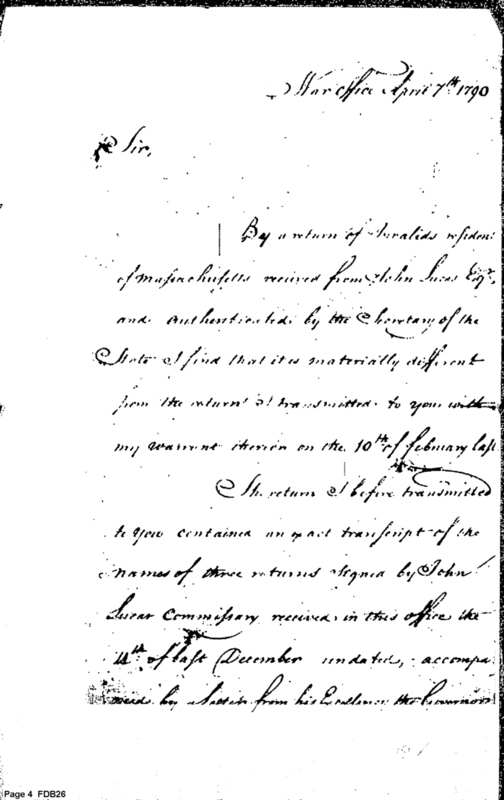 War office April 7th 1790
Sir,
By a return of Invalids resident
of Massachusetts received from John Lucas Esqr.
and authenticated by the Secretary of the
State I find that it is materially different
from the return I transmitted to you with
my warrant therein on the 10th of february last
The return I before transmitted
to you contained an exact transcript of the
names of three returns signed by John
Lucas Commissary received in this office the
14th of last December undated, accompa
nied by a letter from his Excellency the Governor
Page 4 FDB26